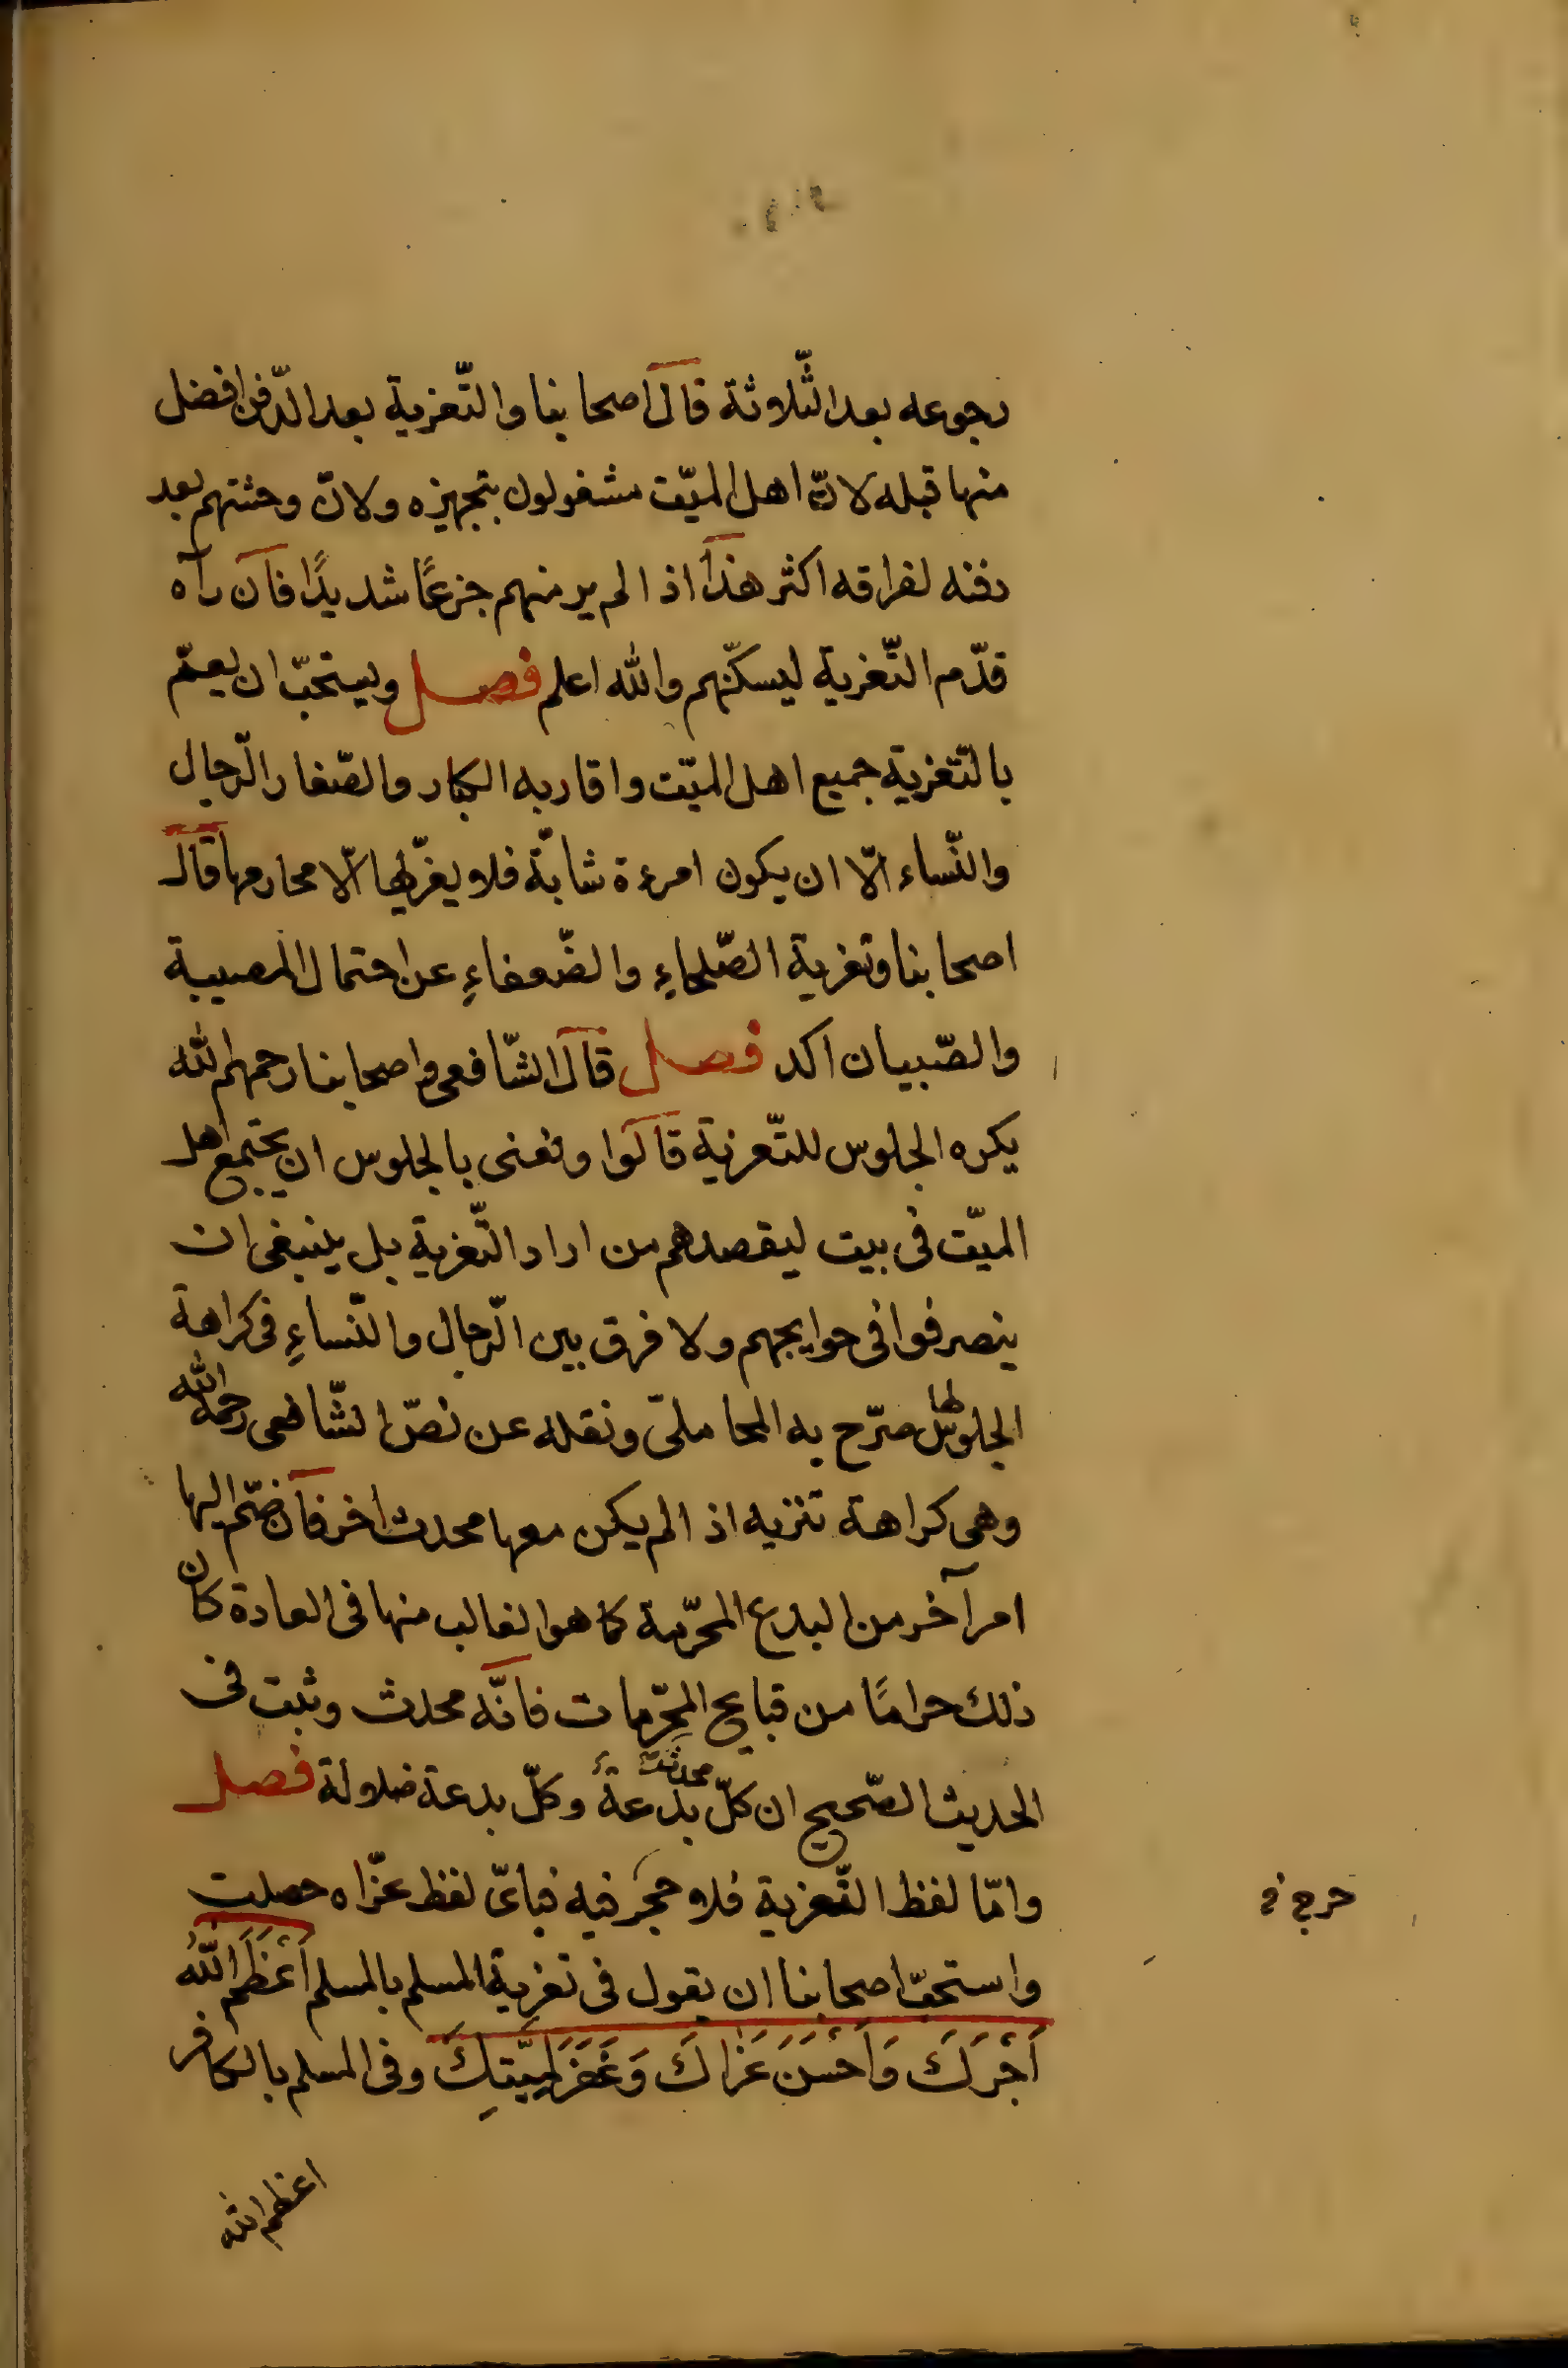 رجوعه بعد الثّلاثة قال اصحابنا والتّعزية بعد الدّفن افضل
منها قبله لانّ اهل الميّت مشغولون بتجهيزه ولانّ وحشتهم بعد
دفنه لفراقه اكثر هذا اذا لم ير منهم جزعًا شديدًا فان رآه
قدّم التّعزية ليسكّنهم والله اعلم فصل ويستحبّ ان يعمّ
بالتّعزية جميع اهل الميّت واقاربه الكبار والصّغار الرّجال
والنّساء الّا ان يكون امرءة شابّة فلا يعزّيها الّا محارمها قال
اصحابنا وتعزية الصّلحاءِ والضّعفاءِ عن احتمال المصيبة
والصّبيان اكد فصل قال الشّافعى واصحابنا رحمهم الله
يكره الجلوس للتّعزية قالوا ونعنى بالجلوس ان يجتمع اهل
الميّت فى بيت ليقصدهم من اراد التّعزية بل ينبغى ان
ينصرفوا فى حوايجهم ولا فرق بين الرّجال والنّساءِ فى كراهة
الجلوس لها صرّح به المحاملىّ ونقله عن نصّ الشّافعى رحمه الله
وهى كراهة تنزيه اذا لم يكن معها محدث اخر فان ضمّ اليها
امر آخر من البدع المحرّمة كما هو الغالب منها فى العادة كان
ذلك حرامًا من قبايح المحرّمات فانّه محدث وثبت فى
الحديث الصّحيح ان كلّ محدثة بدعة وكلّ بدعة ضلالة فصل
وامّا لفظ التّعزية فلا حجر فيه فباىّ لفظ عزّاه حصلت
واستحبّ اصحابنا ان يقول فى تعزية المسلم بالمسلم اَعْظَمَ اللّٰهُ
اَجْرَكَ وَاَحْسَنَ عَزَاكَ وَغَفَرَ لِمَيّتِكَ وفى المسلم بالكافر
اعظم الله